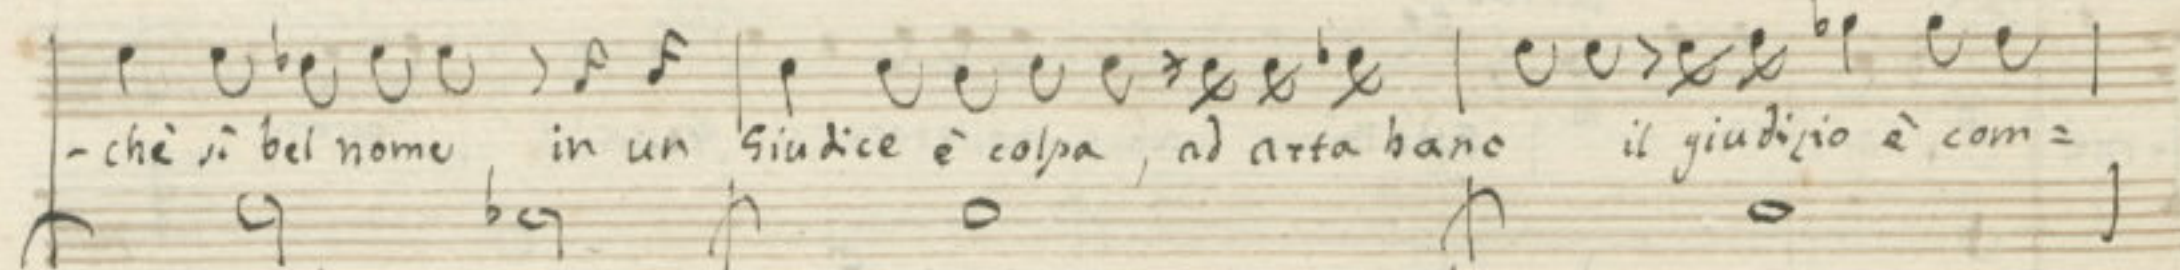 -chè sì bel nome, in un Giudice è colpa, ad Artabano il giudizio è com=